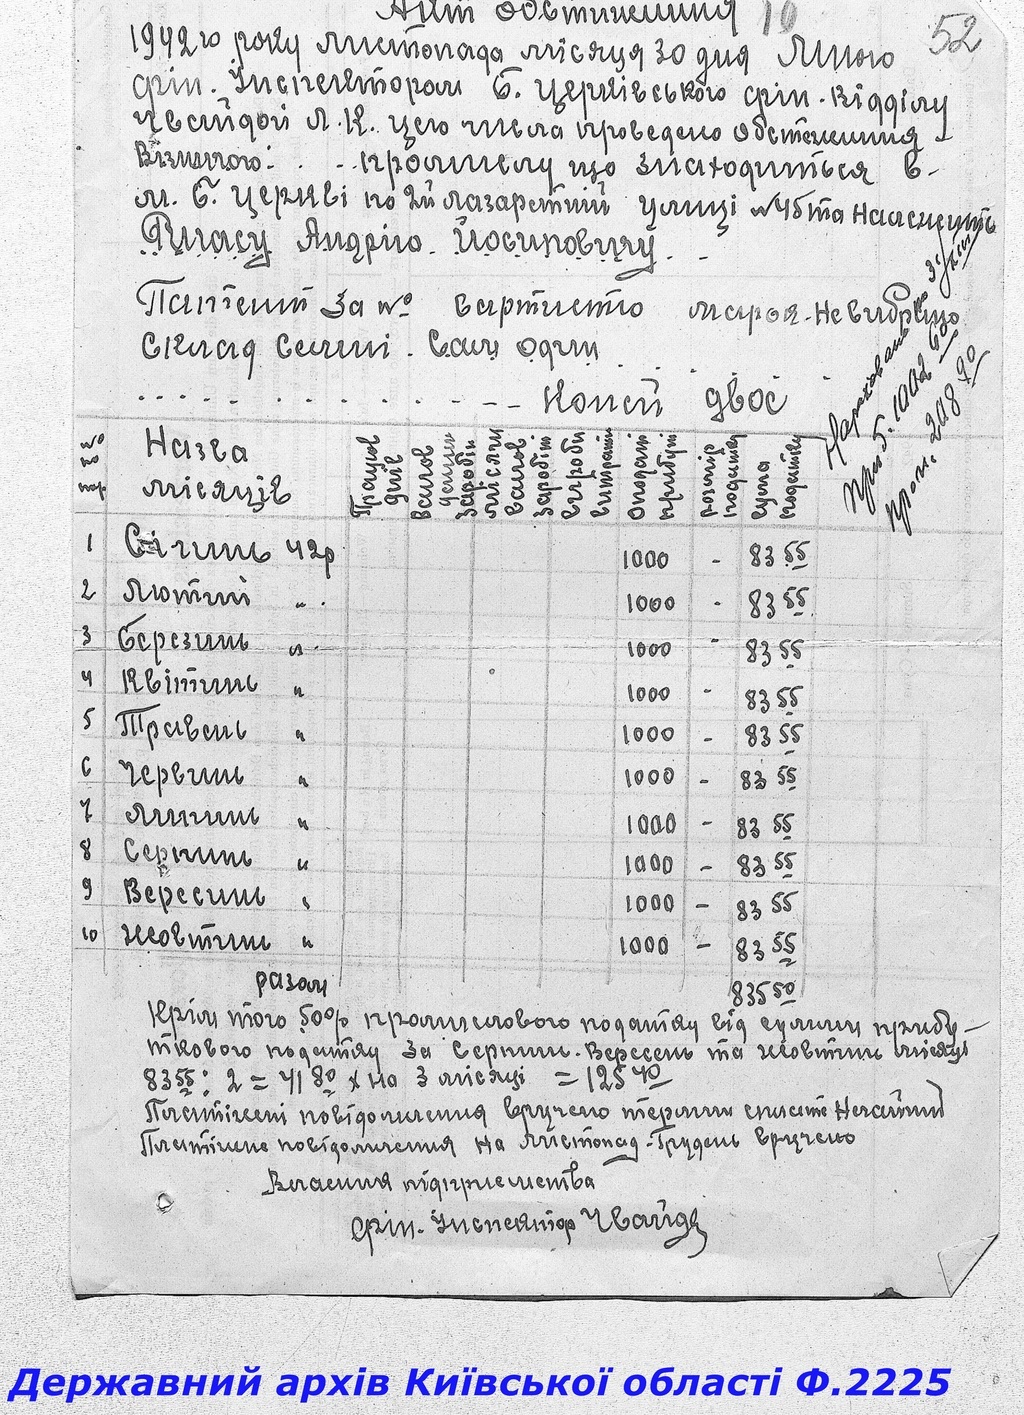 Акт обстеження 10
52
1942го року листопада місяця 30 дня Мною
фін. Інспектором Б. Церківського фін. відділу
Чвайдой Л. К. цего числа проведено обстеження
Візничого: промислу що знаходиться в
м. Б. Церкві по 2й лазаретній улиці № 45 та належить
Власу Андрію Йосиповичу
Патент за № вартистю марок. Не вибрано
Склад семмі. Сам один
Коней двоє
Нараховано
при. б. 1002 60
пром. 208 90
№ по пор Назва місяців Працюв днів валов денни заробіт місячн валов заробіт виробн витрати оподат прибут розмір податку сума податку
1 Січинь 42р 1000 - 83 55
2 Лютий " 1000 - 83 55
3 Березинь " 1000 - 83 55
4 Квітинь " 1000 - 83 55
5 Травень " 1000 - 83 55
6 Червинь " 1000 - 83 55
7 Липинь " 1000 - 83 55
8 Серпинь " 1000 - 83 55
9 Вересинь " 1000 - 83 55
10 Жовтинь " 1000 - 83 55
разом 835 50
Крім того 50% промислового податку від сумми прибу-
ткового податку за Серпин. Вересень та жовтинь місяць
83 55 : 2 = 41 80 х на 3 місяці = 125 40
Платіжні повідомлення вручено термин сплате Негайний
Платіжне повідомлення на Листопад-Грудень вручено
Власник підприємства
фін. Інспектор Чвайда
Державний архів Київської області Ф.2225